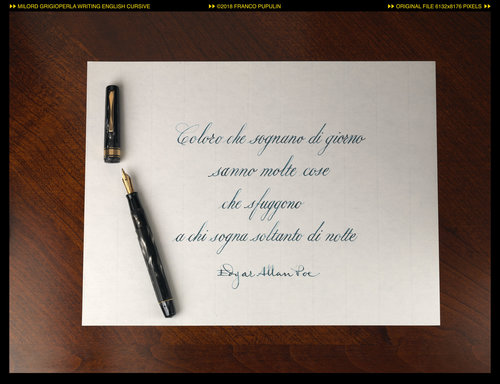 MILORD GRIGIOPERLA WRITING ENGLISH CURSIVE
©2018 FRANCO PUPULIN
ORIGINAL FILE 6132x8176 PIXELS
Coloro che sognano di giorno
sanno molte cose
che sfuggono
a chi sogna soltanto di notte
Edgar Allan Poe